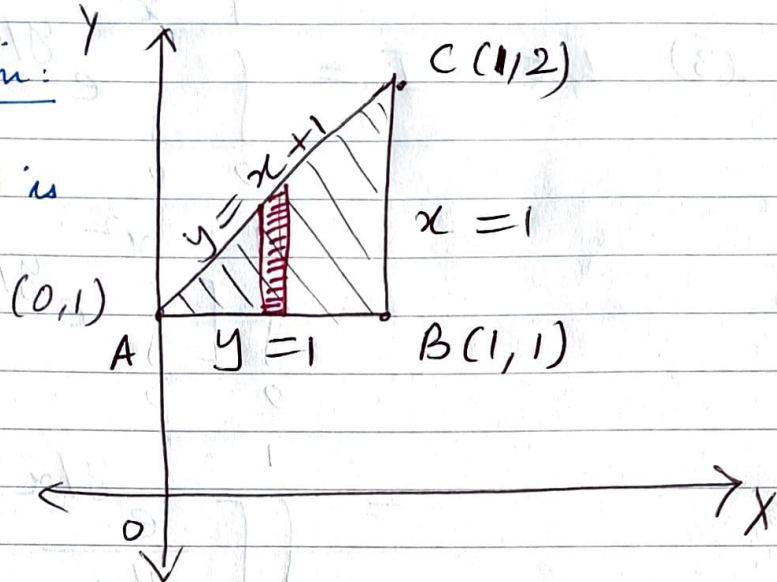 Y
n:
C (1,2)
is
y = x + 1
x = 1
(0,1)
A
y = 1
B (1, 1)
O
X